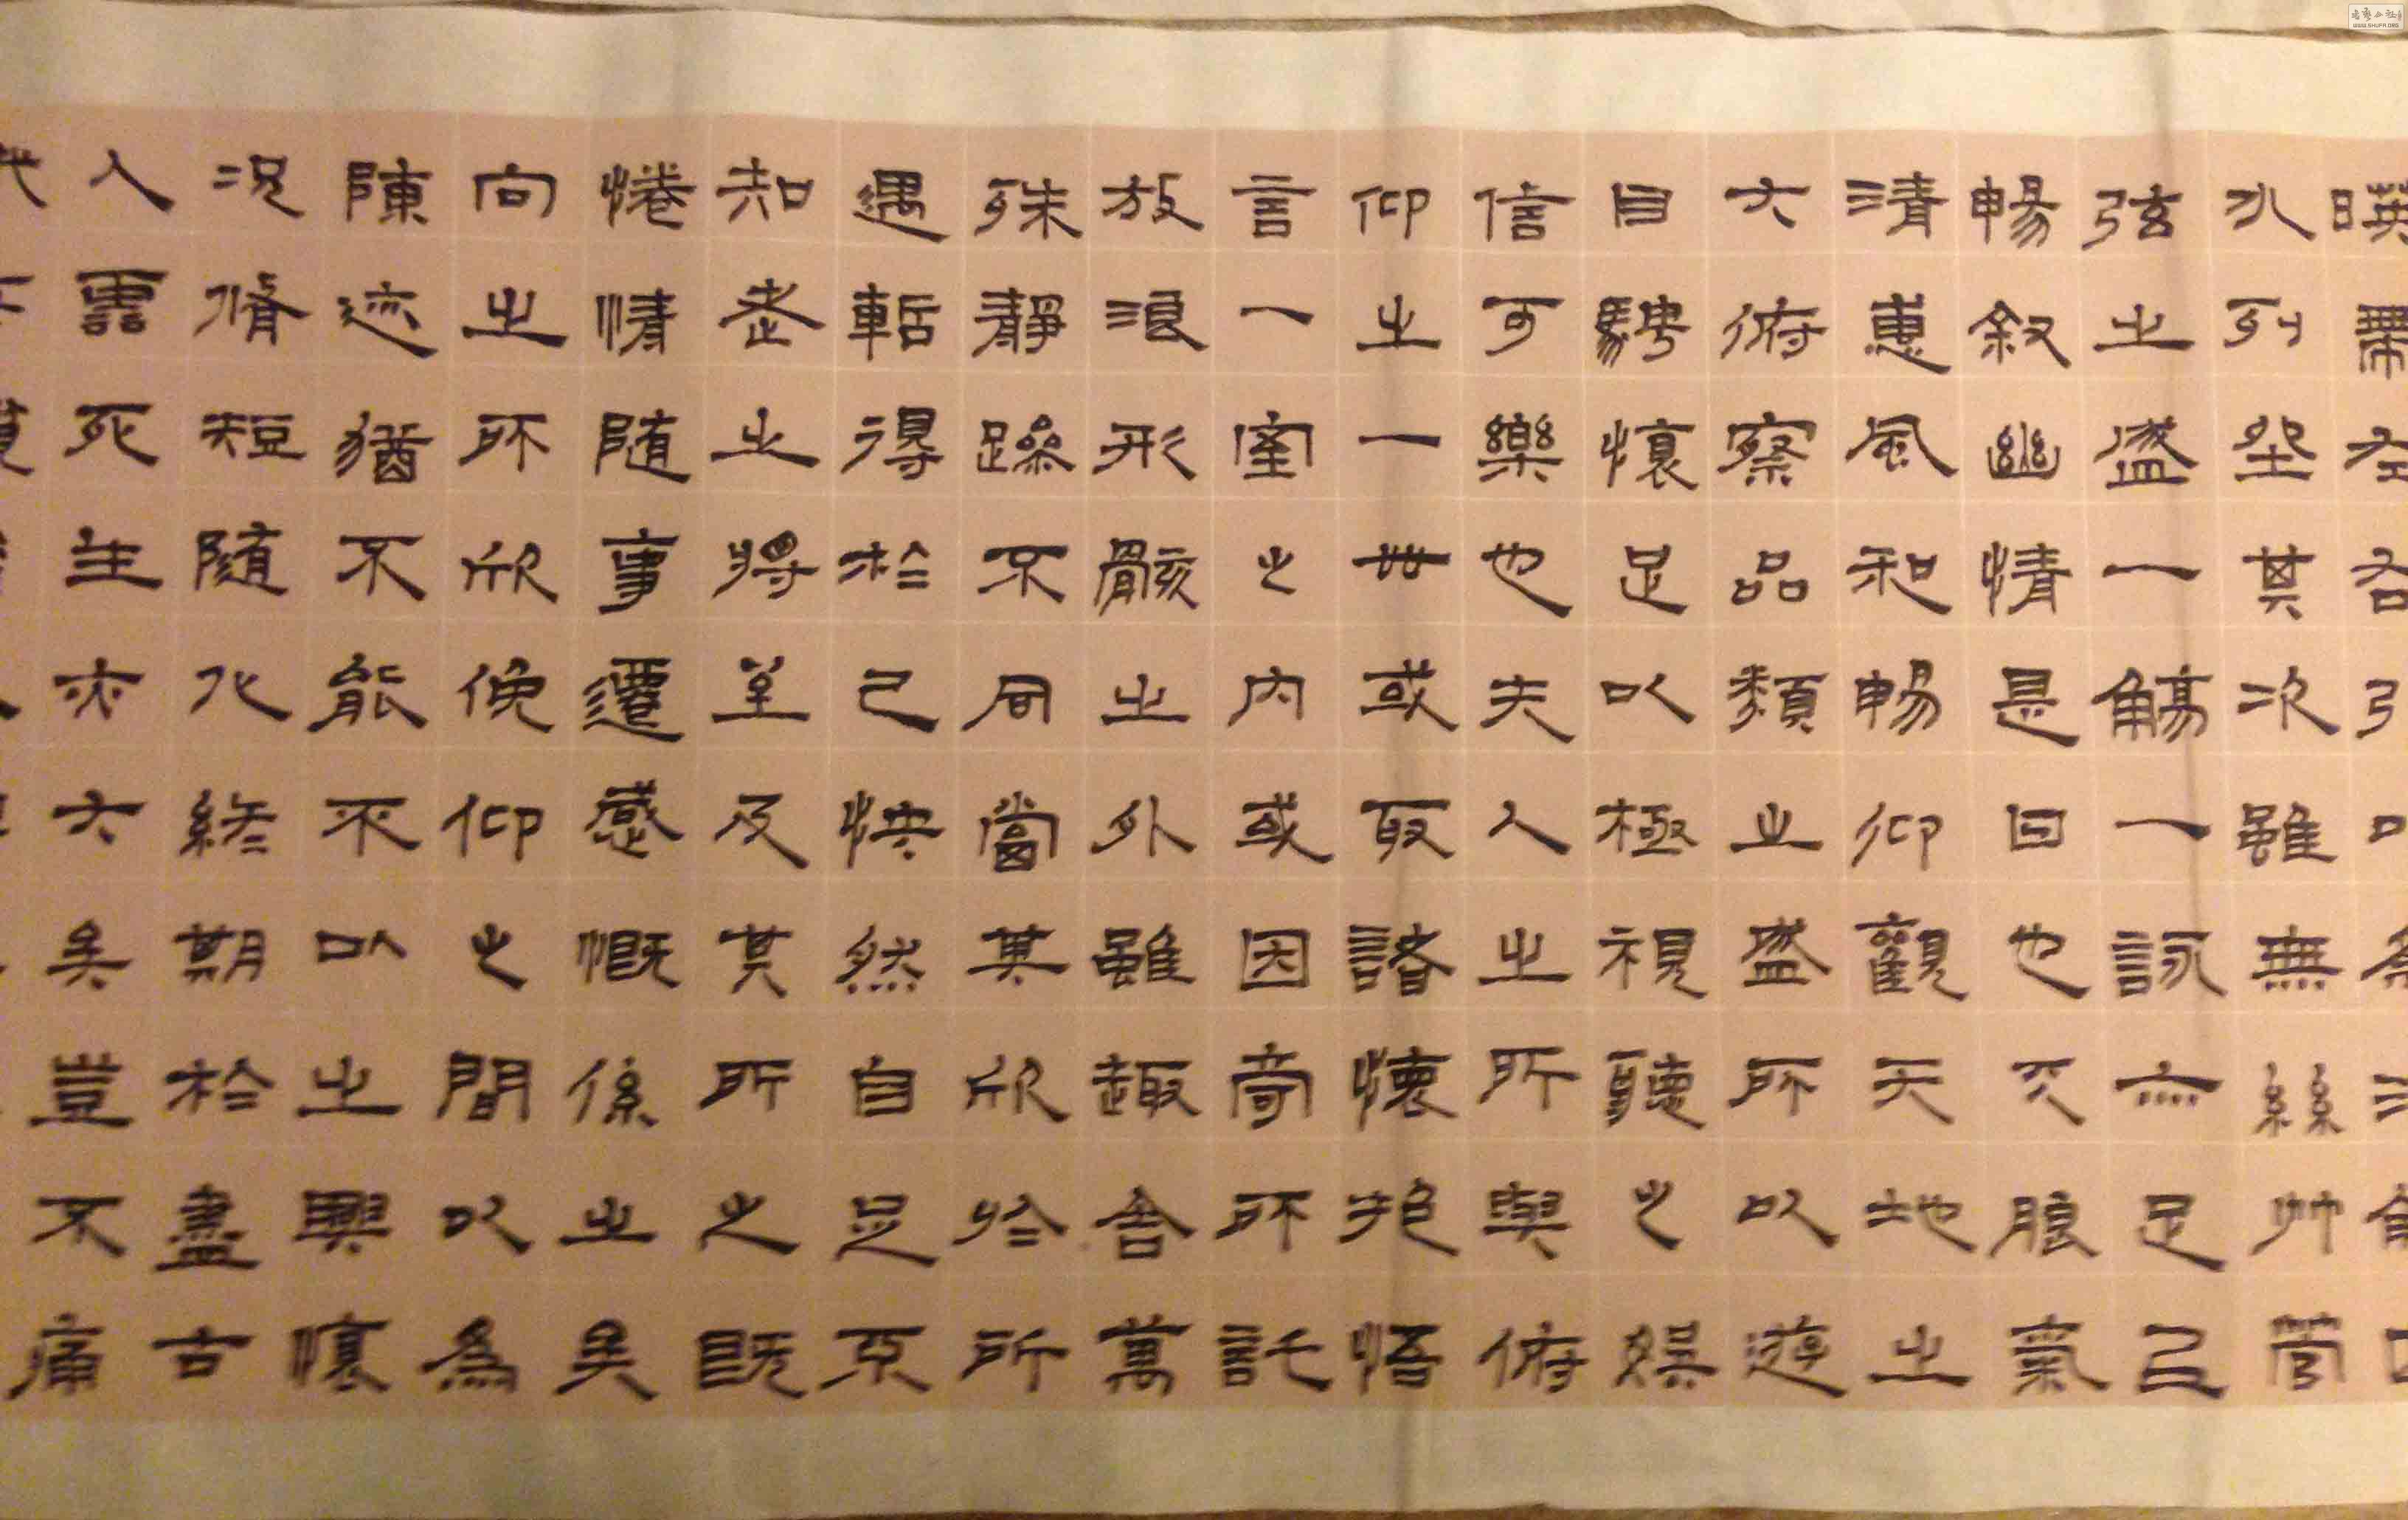 暎帶左右引
水列坐其次雖無絲竹管
弦之盛一觴一詠亦足㠯
暢叙幽情是日也天朗氣
清惠風和暢仰觀天地之
大俯察品類之盛所以遊
目騁懷足以極視聽之娛
信可樂也夫人之所與俯
仰之一世或取諸懷抱悟
言一室之内或因寄所託
放浪形骸之外雖趣舍萬
殊靜躁不同當其欣於所
遇暫得於己快然自足不
知老之將至及其所之既
惓情隨事遷感慨係之矣
向之所欣俛仰之間以為
陳迹猶不能不以之興懷
况脩短隨化終期於盡古
人雲死生亦大矣豈不痛